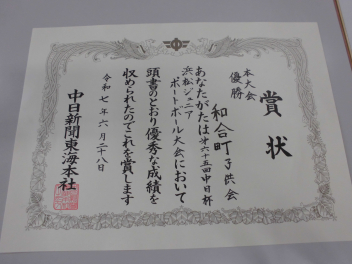 賞状
本大会
優勝
和合町子供会
あなたがたは第六十五回中日杯
浜松ジュニア
ポートボール大会において
頭書のとおり優秀な成績を
収められたのでこれを賞します
令和七年六月二十八日
中日新聞東海本社